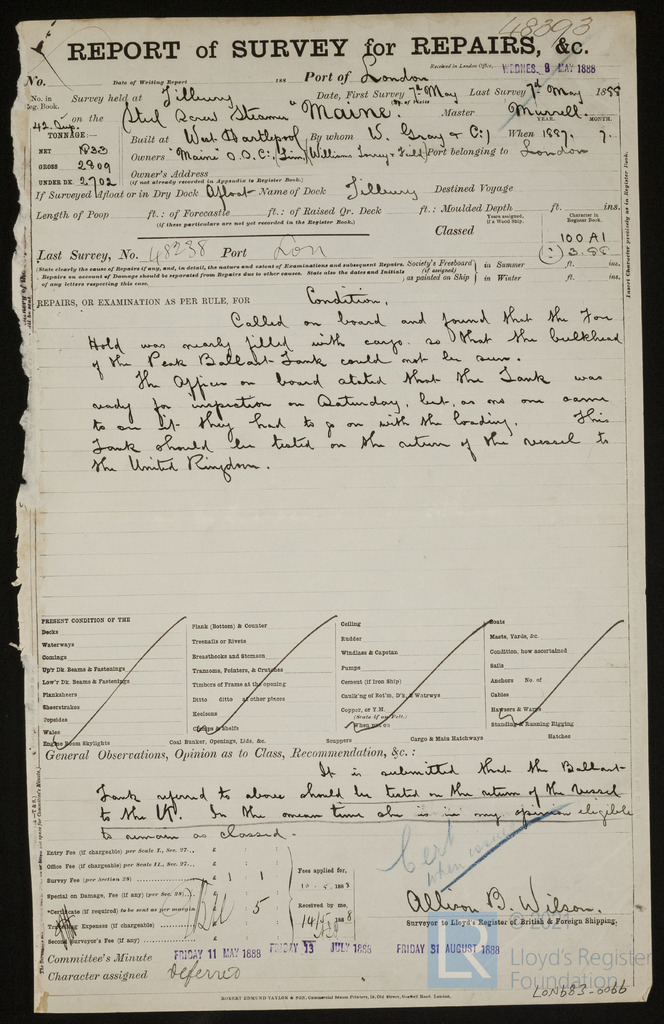 48393
REPORT of SURVEY for REPAIRS, &c.
Received in London Office, WEDNES. 9 MAY 1888
No. Date of Writing Report 188 Port of London
No. in Reg. Book. Survey held at Tilbury Date, First Survey 7th May Last Survey 7th May 1888
42 Sup. on the Steel Screw Steamer "Maine" Master Murrell
TONNAGE:— YEAR. MONTH.
NET 1833 Built at West Hartlepool By whom W. Gray & Co When 1887. 7.
GROSS 2809 Owners "Maine" S.S. Co. Lim. (Williams Torrey & Feild) Port belonging to London
UNDER DK. 2702 Owner's Address
(if not already recorded in Appendix to Register Book.)
If Surveyed Afloat or in Dry Dock Afloat Name of Dock Tilbury Destined Voyage
Length of Poop ft.: of Forecastle ft.: of Raised Qr. Deck ft.: Moulded Depth ft. ins.
(if these particulars are not yet recorded in the Register Book.)
Years assigned, if a Wood Ship. Character in Register Book.
Classed 100A1
3.88
Last Survey, No. 48238 Port Lon
(State clearly the cause of Repairs if any, and, in detail, the nature and extent of Examinations and subsequent Repairs.
Repairs on account of Damage should be separated from Repairs due to other causes. State also the dates and Initials
of any letters respecting this case.
Society's Freeboard (if assigned) as painted on Ship
in Summer ft. ins.
in Winter ft. ins.
Insert Character precisely as in Register Book.
REPAIRS, OR EXAMINATION AS PER RULE, FOR Condition.
Called on board and found that the Fore
Hold was nearly filled with cargo so that the bulkhead
of the Peak Ballast Tank could not be seen.
The Officer on board stated that the Tank was
ready for inspection on Saturday, but, as no one came
to see it they had to go on with the loading. This
Tank should be tested on the return of the vessel to
the United Kingdom.
PRESENT CONDITION OF THE
Decks
Waterways
Comings
Upr Dk. Beams & Fastenings
Lowr Dk. Beams & Fastenings
Planksheers
Sheerstrakes
Topsides
Wales
Engine Room Skylights
Plank (Bottom) & Counter
Treenails or Rivets
Breasthooks and Stemson
Transoms, Pointers, & Crutches
Timbers of Frame at the opening
Ditto ditto at other places
Keelsons
Clamps & Shelfs
Coal Bunker, Openings, Lids, &c.
Ceiling
Rudder
Windlass & Capstan
Pumps
Cement (if Iron Ship)
Caulk'ng of Bot'm, D'k, & Watrwys
Copper, or Y.M.
(State if on Felt.)
When put on
Scuppers
Cargo & Main Hatchways
Boats
Masts, Yards, &c.
Condition, how ascertained
Sails
Anchors No. of
Cables
Hawsers & Warps
Standing & Running Rigging
Hatches
General Observations, Opinion as to Class, Recommendation, &c.:
It is submitted that the Ballast
Tank referred to above should be tested on the return of the vessel
to the UK. In the mean time she is in my opinion eligible
to remain as classed.
Entry Fee (if chargeable) per Scale I., Sec. 27... £
Office Fee (if chargeable) per Scale II., Sec. 27... £
Survey Fee (per Section 28) £ 1 1
Special on Damage, Fee (if any) (per Sec. 28) £
Certificate (if required) to be sent as per margin 5
Travelling Expenses (if chargeable) £
Second Surveyor's Fee (if any) £
Fees applied for,
10.5.1888
Received by me,
14/5/1888
Cert
when issued
Allison B. Wilson
Surveyor to Lloyd's Register of British & Foreign Shipping.
Committee's Minute FRIDAY 11 MAY 1888 FRIDAY 13 JULY 1888 FRIDAY 31 AUGUST 1888
Character assigned deferred
© 2021
LR
Lloyd's Register
Foundation
LON683-0066
ROBERT EDMUND TAYLOR & SON, Commercial Steam Printers, 19, Old Street, Goswell Road, London.